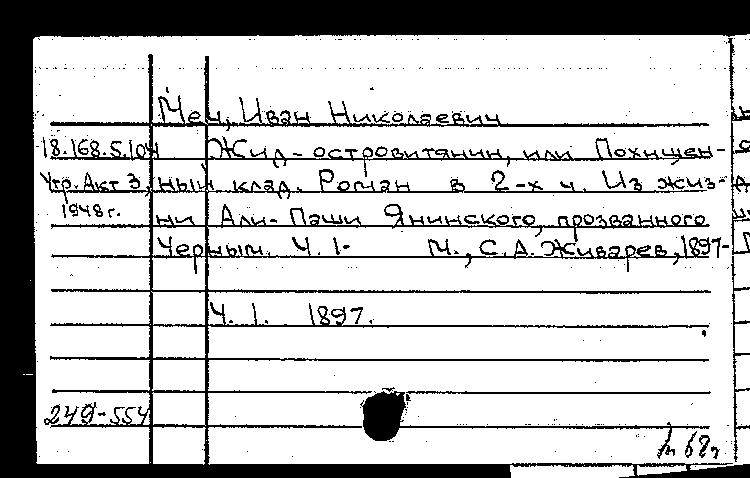 Меч, Иван Николаевич
18.168.5.104 Жид-островитянин, или Похищен-
Утр. Акт 3, ный клад. Роман в 2-х ч. Из жиз-
1948 г. ни Али-Паши Янинского, прозванного
Черным. Ч. 1- М., С. А. Живарев, 1897-
Ч. 1. 1897.
249-554